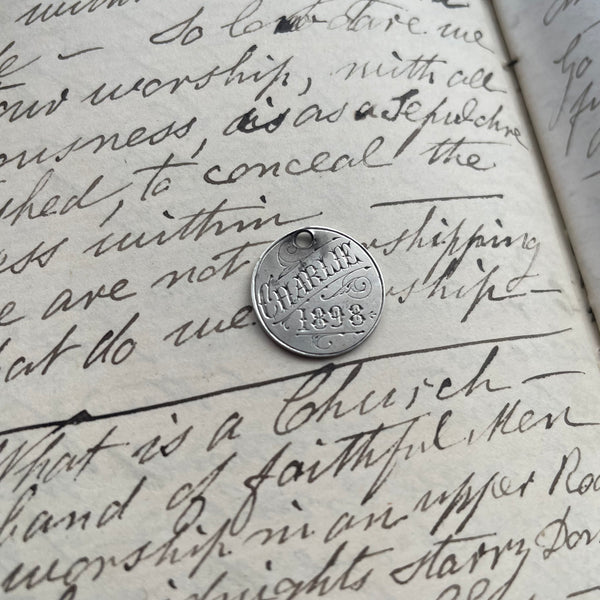 within
So
dare we
our worship, with all
ousness, as as a Sepulchre
shed, to conceal the
ess within
are not shipping
at do we ship —
CHARLIE
1898
What is a Church —
band of faithful Men
worship in an upper Roo
nights starry Dom
Go